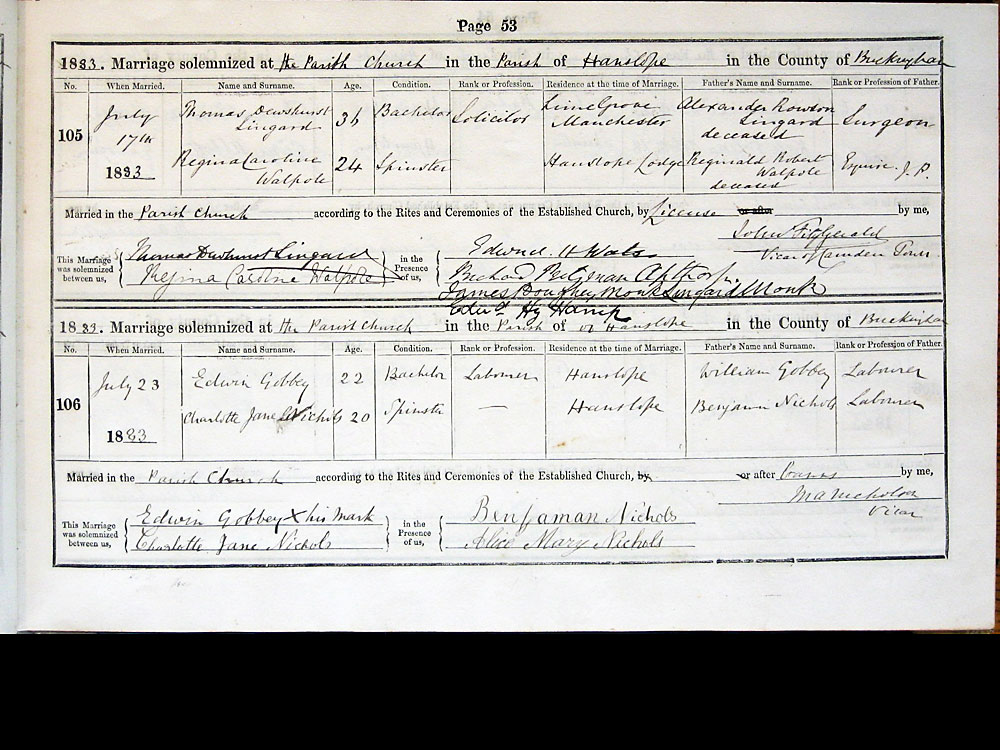 Page 53
1883. Marriage solemnized at the Parish Church in the Parish of Hanslope in the County of Buckingham
No. When Married. Name and Surname. Age. Condition. Rank or Profession. Residence at the time of Marriage. Father's Name and Surname. Rank or Profession of Father.
105 July 17th 1883 Thomas Dewhurst Lingard 36 Bachelor Solicitor Lime Grove Manchester Alexander Rowdon Lingard deceased Surgeon
Regina Caroline Walpole 24 Spinster Hanslope Lodge Reginald Robert Walpole deceased Esquire J. P.
Married in the Parish Church according to the Rites and Ceremonies of the Established Church, by License or after by me,
John Fitzgerald
Vicar of Camden Town
This Marriage was solemnized between us, Thomas Dewhurst Lingard
Regina Caroline Walpole
in the Presence of us, Edward H Watts
Apthorp
James Monk Lingard Monk
Edwd Hy
1883. Marriage solemnized at the Parish Church in the Parish of of Hanslope in the County of Buckingham
No. When Married. Name and Surname. Age. Condition. Rank or Profession. Residence at the time of Marriage. Father's Name and Surname. Rank or Profession of Father.
106 July 23 1883 Edwin Gobbey 22 Bachelor Labourer Hanslope William Gobbey Labourer
Charlotte Jane Nichols 20 Spinster — Hanslope Benjamin Nichols Labourer
Married in the Parish Church according to the Rites and Ceremonies of the Established Church, by or after Banns by me,
Vicar
This Marriage was solemnized between us, Edwin Gobbey X his mark
Charlotte Jane Nichols
in the Presence of us, Benjaman Nichols
Alice Mary Nichols